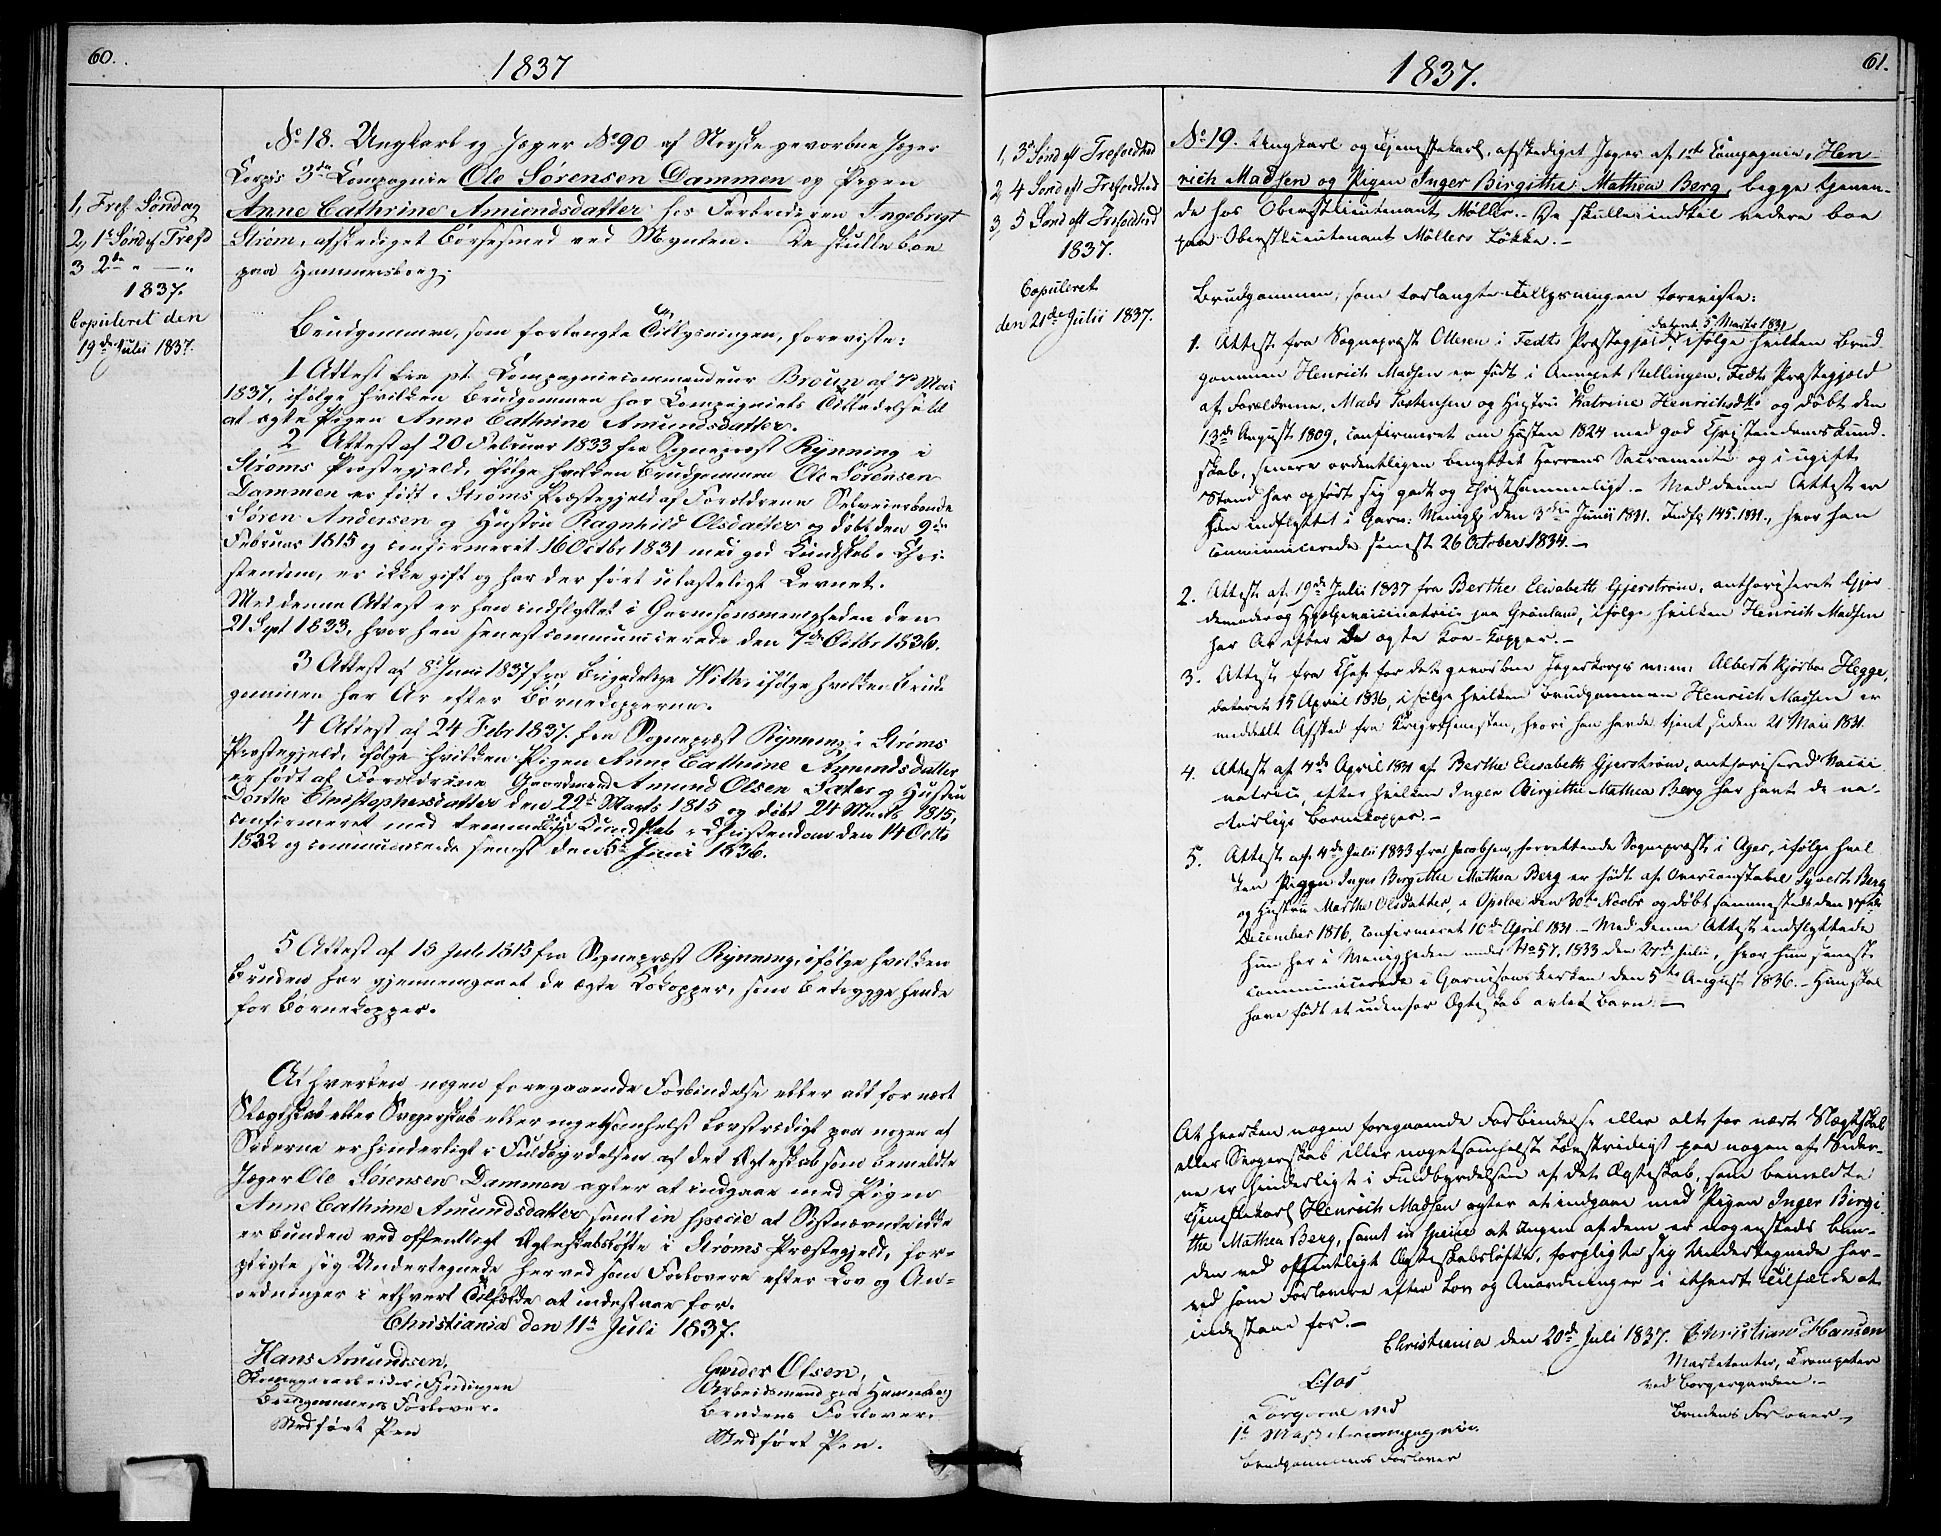 60.
1837
1, Tref. Søndag
2, 1ste Sønd ef Trefd
3 2de " — "
1837.
Copuleret den
19de Julii 1837.
No 18. Ungkarl og Jæger No 90 af Norske gevorbne Jæger
Corps 3die Compagnie Ole Sørensen Dammen og Pigen
Anne Cathrine Amundsdatter hos Forbrederen Ingebrigt
Strøm, afskediget Børsesmed ved Mynten. De skulle boe
paa Hammersborg.
Brudgommen, som forlangte Tillysningen, foreviste:
1 Attest fra pt. Compagniecommandeur Broun af 7de Mai
1837, ifølge hvilken Brudgommen har Compagniets Tilladelse til
at ægte Pigen Anne Cathrine Amundsdatter.
2 Attest af 20 Februar 1833 fra Sognepræst Rynning i
Strøms Præstegjeld, ifølge hvilken Brudgommen Ole Sørensen
Dammen er født i Strøms Præstegjeld af Forældrene Selveierbonde
Søren Andersen og Hustru Ragnhild Olsdatter og døbt den 9de
Februar 1815 og confirmeret 16 Octbr 1831 med god Kundskab i Chri-
stendom, er ikke gift og har der ført ulasteligt Levnet.
Med denne Attest er han indflyttet i Garnisonsmenigheden den
21 Sept 1833, hvor han senest communicerede den 7de Octbr 1836.
3 Attest af 8de Juni 1837 fra Brigadelæge Withs ifølge hvilken Brud-
gommen har Ar efter Børnekopperne.
4 Attest af 24 Febr 1837 fra Sognepræst Rynning i Strøms
Præstegjeld, ifølge hvilken Pigen Anne Cathrine Amundsdatter
er født af Forældrene Gaardmand Amund Olsen Sater og Hustru
Dorthe Christophersdatter den 22de Marts 1815 og døbt 24 Marts 1815,
confirmeret med temmelig Kundskab i Christendom den 14 Octb
1832 og communicerede senest den 5te Juni 1836.
5 Attest af 13 Juli 1815 fra Sognepræst Rynning, ifølge hvilken
Bruden har gjennemgaaet de ægte Kokopper, som betrygge hende
for Børnekopper.
At hverken nogen foregaaende Forbindelse eller alt for nært
Slægtskab eller Svogerskab eller noget somhelst Lovstridigt paa nogen af
Siderne er hinderligt i Fuldbyrdelsen af det Ægteskab som bemeldte
Jæger Ole Sørensen Dammen agter at indgaae med Pigen
Anne Cathrine Amundsdatter samt in specie at Sistnævnte ikke
er bunden ved offentligt Ægteskabsløfte i Strøms Præstegjeld, for-
pligte sig Undertegnede herved som Forlovere efter Lov og An-
ordninger i ethvert Tilfælde at indestaae for.
Christiania den 11te Juli 1837.
Hans Amundsen,
i Fjerdingen
Brudgommens Forlover.
Medført Pen
Gunder Olsen,
Arbeidsmand paa Hammersborg
Brudens Forlover.
Medført Pen.
61.
1837.
1, 3die Sønd eft Trefoldhed
2, 4 Sønd eft Trefoldhed
3, 5 Sønd eft Trefoldhed
1837.
Copuleret
den 21de Julii 1837.
No 19. Ungkarl og Tjenestekarl, afskediget Jæger af 1ste Compagnie, Hen-
rich Madsen og Pigen Inger Birgithe Mathea Berg, begge tjenen-
de hos Oberstlieutenant Møller. De skulle indtil videre boe
paa Oberstlieutenant Møllers Løkke.—
Brudgommen, som forlangte Tillysningen foreviste:
dateret 5 Marts 1831
1. Attest fra Sognepræst Ottesen i Fedts Præstegjeld, ifølge hvilken Brud-
gommen Henrich Madsen er født i Annexet Rollingen, Fedts Præstegjeld
af Forældrene, Mads Torstensen og Hustru Katrine Henrichsdtr og døbt den
13de August 1809, confirmeret om Høsten 1824 med god Christendomskund-
skab, senere ordentligen benyttet Herrens Sacramente og i ugift
Stand har opført sig godt og christsømmeligt.— Med denne Attest er
han indflyttet i Garn: Menigh den 3die Junii 1831. Indfl 145. 1831., hvor han
communicerede senest 26 October 1834.—
2. Attest af 19de Julii 1837 fra Berthe Elisabeth Gjerstrøm, authoriseret Gjor-
demoder og Hjelpevaccinatrice paa Grønland, ifølge hvilken Henrich Madsen
har Ar efter de ægte Koe-Kopper.—
3. Attest fra Chef for det gevorbne Jægerkorps m:m: Albert Kjørboe Hegge,
dateret 15 April 1836, ifølge hvilken Brudgommen Henrich Madsen er
meddeelt Afsked fra Krigstjenesten, hvori han havde tjent siden 21 Mai 1831.
4. Attest af 4de April 1831 af Berthe Elisabeth Gjerstrøm, authoriseret Vacci-
natrice, efter hvilken Inger Birgitte Mathea Berg har havt de na-
turlige Børnekopper.—
5. Attest af 4de Julii 1833 fra Jacobsen, forrettende Sognepræst i Ager, ifølge hvil-
ken Pigen Inger Birgitte Mathea Berg er født af Overconstabel Syvert Berg
og Hustru Marthe Olsdatter, i Opsloe den 30te Novbr og døbt sammesteds den
December 1816, confirmeret 10de April 1831.— Med denne Attest indflyttede
hun her i Menigheden under No 57, 1833 den 27de Julii, hvor hun senest
communicerede i Garnisonskirken den 5te August 1836.— Hun skal
have født et udenfor Ægteskab avlet Barn.—
At hverken nogen foregaaende Forbindelse eller alt for nært Slægtskab
eller Svogerskab eller nogetsomhelst Lovstridigt paa nogen af Sider-
ne er hinderligt i Fuldbyrdelsen af det Ægteskab, som bemeldte
Tjenestekarl Henrich Madsen agter at indgaae med Pigen Inger Birgi-
the Mathea Berg, samt in specie at Ingen af dem er nogensteds bun-
den ved offentligt Ægteskabsløfte, forpligte sig Undertegnede her-
ved som Forlovere efter Lov og Anordninger i ethvert Tilfælde at
indestaae for.—
Christiania den 20de Juli 1837. Christian Hansen
Marketenter, Trompeter
ved Borgergarden.—
Brudens Forlover
ved
1te
Brudgommens Forlover